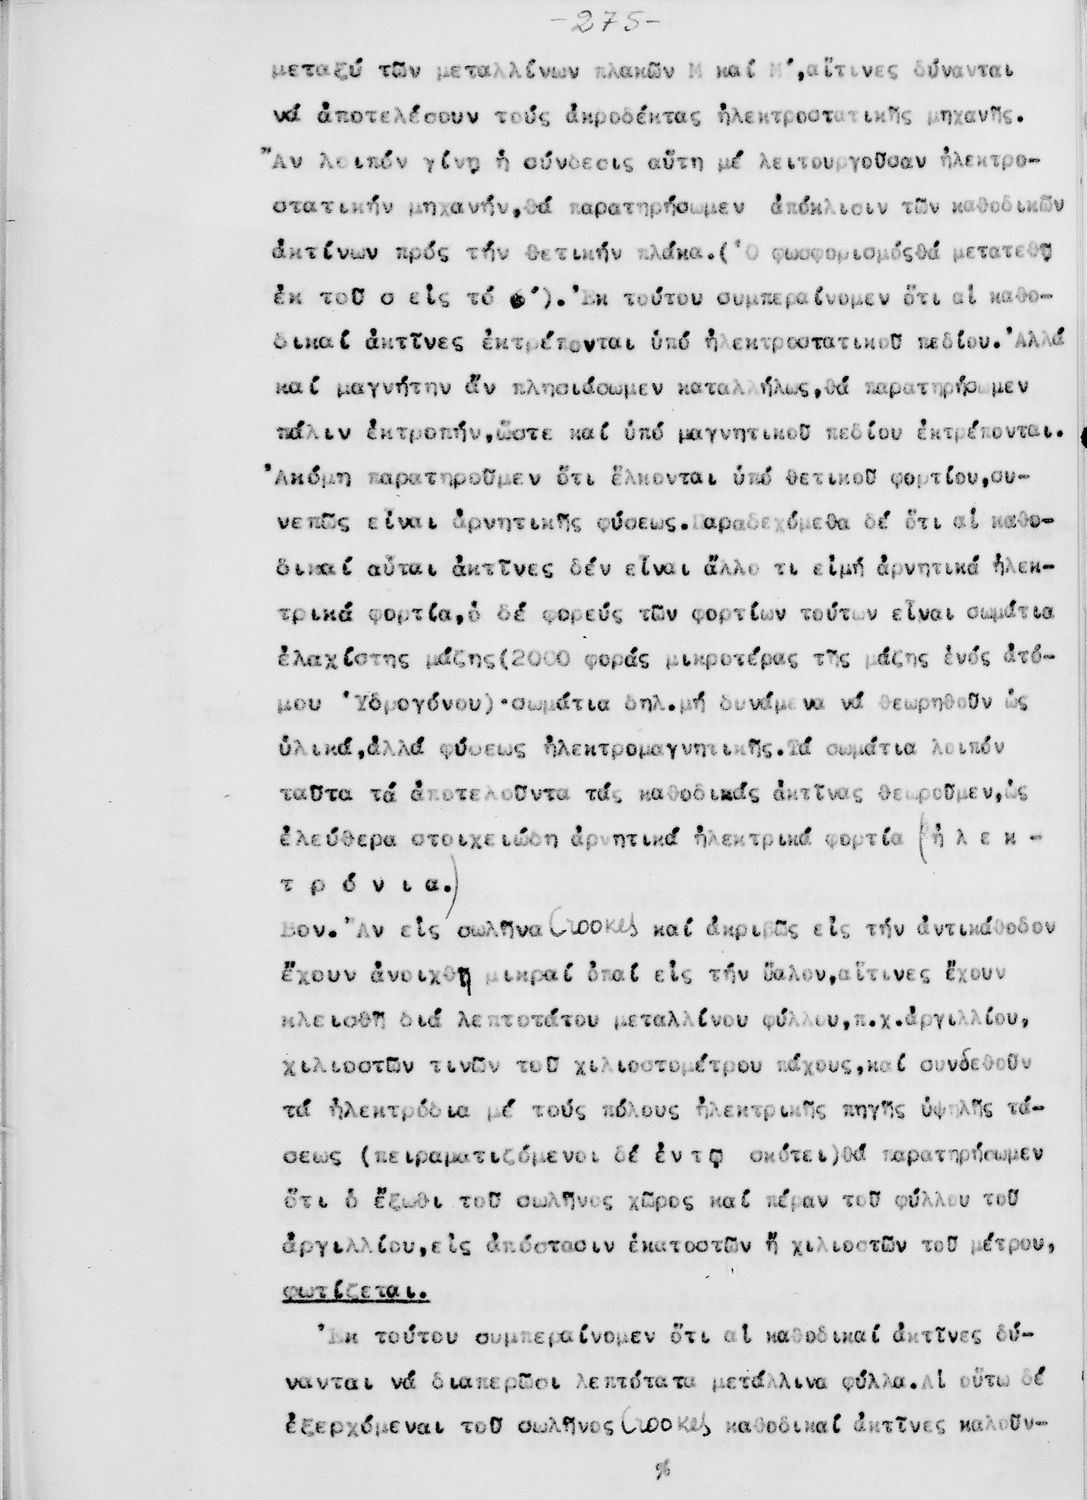 -275-
μεταξύ τῶν μεταλλίνων πλακῶν Μ καί Μ´,αἵτινες δύνανται
νά ἀποτελέσουν τούς ἀκροδέκτας ἠλεκτροστατικῆς μηχανῆς.
Ἄν λοιπόν γίνῃ ἡ σύνδεσις αὕτη μέ λειτουργοῦσαν ἠλεκτρο-
στατικήν μηχανήν,θά παρατηρήσωμεν ἀπόκλισιν τῶν καθοδικῶν
ἀκτίνων πρός τήν θετικήν πλάκα.(Ὁ φωσφορισμόςθά μετατεθῇ
ἐκ τοῦ σ εἰς τό σ´).Ἐκ τούτου συμπεραίνομεν ὅτι αἱ καθο-
δικαί ἀκτῖνες ἐκτρέπονται ὑπό ἠλεκτροστατικοῦ πεδίου.Ἀλλά
καί μαγνήτην ἄν πλησιάσωμεν καταλλήλως,θά παρατηρήσωμεν
πάλιν ἐκτροπήν,ὥστε καί ὑπό μαγνητικοῦ πεδίου ἐκτρέπονται.
Ἀκόμη παρατηροῦμεν ὅτι ἕλκονται ὑπό θετικοῦ φορτίου,συ-
νεπῶς εἶναι ἀρνητικῆς φύσεως.Παραδεχόμεθα δέ ὅτι αἱ καθο-
δικαί αὗται ἀκτῖνες δέν εἶναι ἄλλο τι εἰμή ἀρνητικά ἠλεκ-
τρικά φορτία,ὁ δέ φορεύς τῶν φορτίων τούτων εἶναι σωμάτια
ἐλαχίστης μάζης(2000 φοράς μικροτέρας τῆς μάζης ἑνός ἀτό-
μου Ὑδρογόνου)·σωμάτια δηλ.μή δυνάμενα νά θεωρηθοῦν ὡς
ὑλικά,ἀλλά φύσεως ἠλεκτρομαγνητικῆς.Τά σωμάτια λοιπόν
ταῦτα τά ἀποτελοῦντα τάς καθοδικάς ἀκτῖνας θεωροῦμεν,ὡς
ἐλεύθερα στοιχειώδη ἀρνητικά ἠλεκτρικά φορτία (ἠ λ ε κ -
τ ρ ό ν ι α.)
Βον.Ἄν εἰς σωλῆνα Crookes καί ἀκριβῶς εἰς τήν ἀντικάθοδον
ἔχουν ἀνοιχθῆ μικραί ὀπαί εἰς τήν ὕαλον,αἵτινες ἔχουν
κλεισθῆ διά λεπτοτάτου μεταλλίνου φύλλου,π.χ.ἀργιλλίου,
χιλιοστῶν τινῶν τοῦ χιλιοστομέτρου πάχους,καί συνδεθοῦν
τά ἠλεκτρόδια μέ τούς πόλους ἠλεκτρικῆς πηγῆς ὑψηλῆς τά-
σεως (πειραματιζόμενοι δέ ἐν τῷ σκότει)θά παρατηρήσωμεν
ὅτι ὁ ἔξωθι τοῦ σωλῆνος χῶρος καί πέραν τοῦ φύλλου τοῦ
ἀργιλλίου,εἰς ἀπόστασιν ἑκατοστῶν ἤ χιλιοστῶν τοῦ μέτρου,
φωτίζεται.
Ἐκ τούτου συμπεραίνομεν ὅτι αἱ καθοδικαί ἀκτῖνες δύ-
νανται νά διαπερῶσι λεπτότατα μετάλλινα φύλλα.Αἱ οὕτω δέ
ἐξερχόμεναι τοῦ σωλῆνος Crookes καθοδικαί ἀκτῖνες καλοῦν-
%